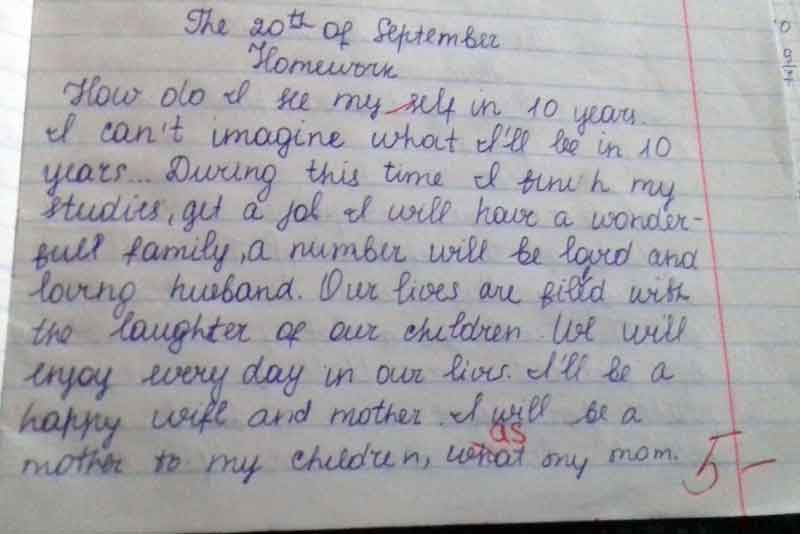 The 20th of September
Homework
How do I see my self in 10 years.
I can't imagine what I'll be in 10
years... During this time I finish my
studies, get a job I will have a wonder-
full family, a number will be loved and
loving husband. Our lives are filled with
the laughter of our children. We will
enjoy every day in our lives. I'll be a
happy wife and mother. I will be a
as
mother to my children, what my mom.
5-